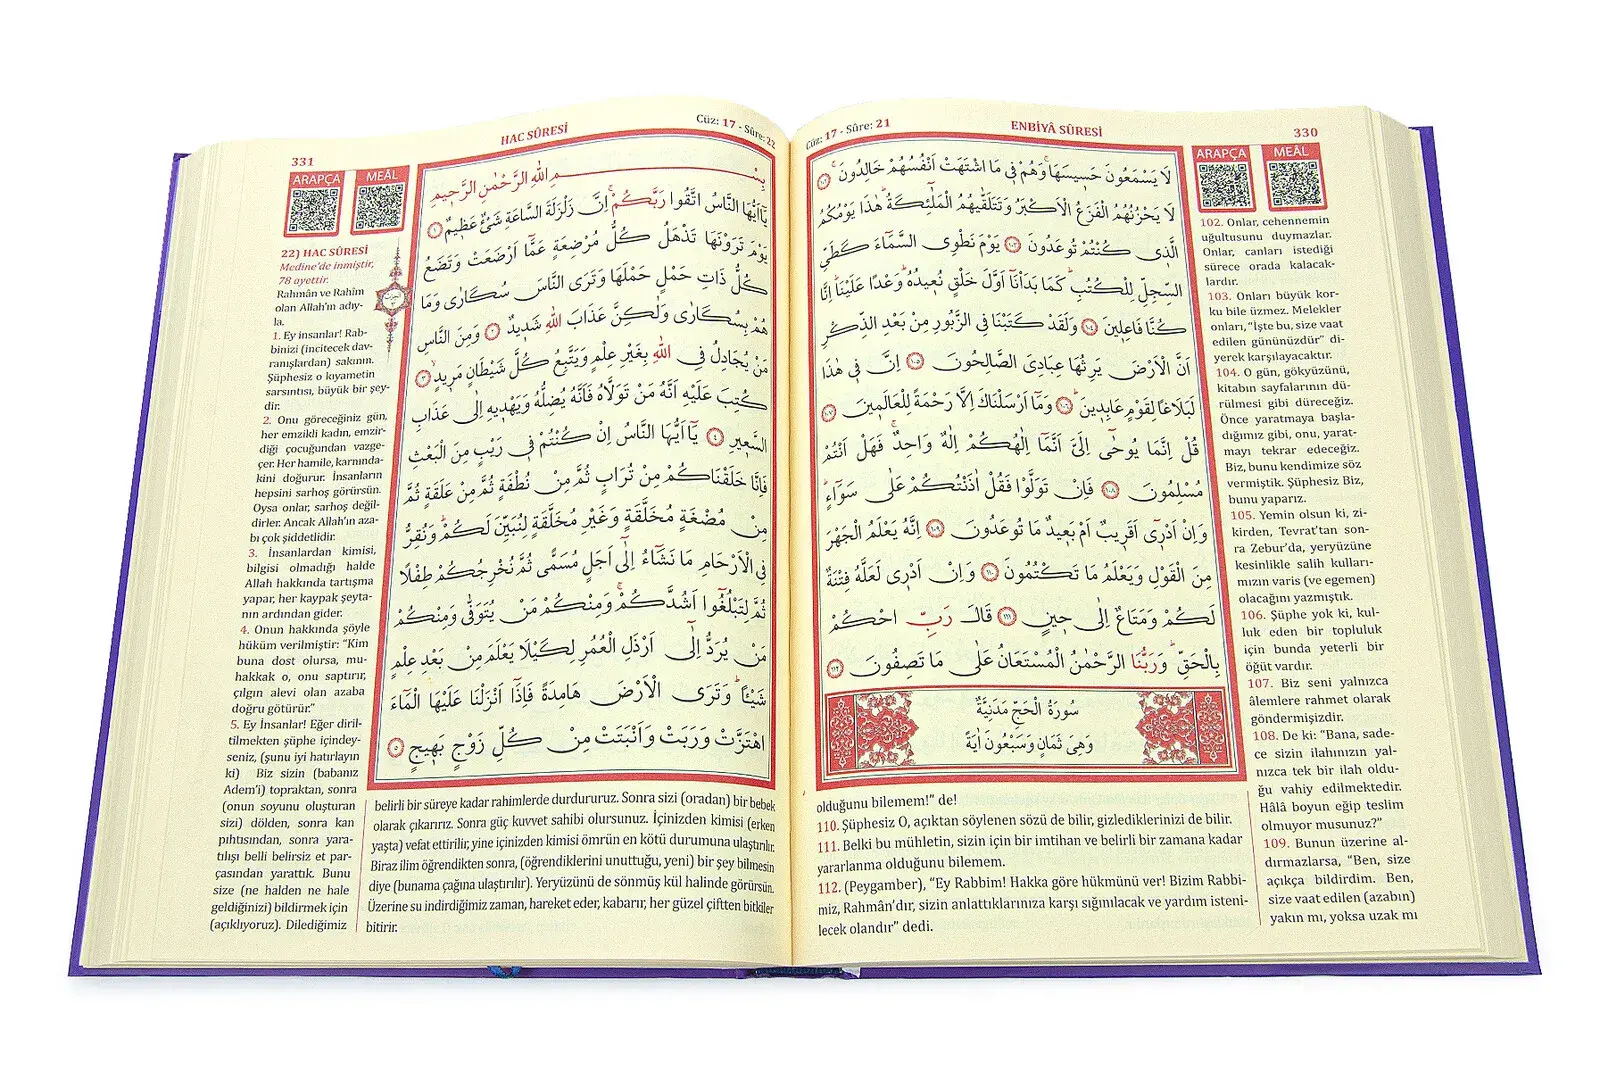 Cüz: 17 - Sûre: 21
ENBİYÂ SÛRESİ
330
لَا يَسْمَعُونَ حَسِيسَهَا وَهُمْ فِى مَا اشْتَهَتْ اَنْفُسُهُمْ خَالِدُونَ ١٠٢
لَا يَحْزُنُهُمُ الْفَزَعُ الْاَكْبَرُ وَتَتَلَقّٰيهُمُ الْمَلٰئِكَةُ هٰذَا يَوْمُكُمُ
الَّذِى كُنْتُمْ تُوعَدُونَ ١٠٣ يَوْمَ نَطْوِى السَّمَٓاءَ كَطَىِّ
السِّجِلِّ لِلْكُتُبِ كَمَا بَدَاْنَٓا اَوَّلَ خَلْقٍ نُعِيدُهُ وَعْدًا عَلَيْنَا اِنَّا
كُنَّا فَاعِلِينَ ١٠٤ وَلَقَدْ كَتَبْنَا فِى الزَّبُورِ مِنْ بَعْدِ الذِّكْرِ
اَنَّ الْاَرْضَ يَرِثُهَا عِبَادِىَ الصَّالِحُونَ ١٠٥ اِنَّ فِى هٰذَا
لَبَلَاغًا لِقَوْمٍ عَابِدِينَ ١٠٦ وَمَٓا اَرْسَلْنَاكَ اِلَّا رَحْمَةً لِلْعَالَمِينَ ١٠٧
قُلْ اِنَّمَا يُوحٰٓى اِلَىَّ اَنَّمَٓا اِلٰهُكُمْ اِلٰهٌ وَاحِدٌ فَهَلْ اَنْتُمْ
مُسْلِمُونَ ١٠٨ فَاِنْ تَوَلَّوْا فَقُلْ اٰذَنْتُكُمْ عَلٰى سَوَٓاءٍ
وَاِنْ اَدْرِٓى اَقَرِيبٌ اَمْ بَعِيدٌ مَا تُوعَدُونَ ١٠٩ اِنَّهُ يَعْلَمُ الْجَهْرَ
مِنَ الْقَوْلِ وَيَعْلَمُ مَا تَكْتُمُونَ ١١٠ وَاِنْ اَدْرِى لَعَلَّهُ فِتْنَةٌ
لَكُمْ وَمَتَاعٌ اِلٰى حِينٍ ١١١ قَالَ رَبِّ احْكُمْ
بِالْحَقِّ وَرَبُّنَا الرَّحْمٰنُ الْمُسْتَعَانُ عَلٰى مَا تَصِفُونَ ١١٢
سُورَةُ الْحَجِّ مَدَنِيَّةٌ
وَهِىَ ثَمَانٍ وَسَبْعُونَ اٰيَةً
ARAPÇA
MEÂL
102. Onlar, cehennemin
uğultusunu duymazlar.
Onlar, canları istediği
sürece orada kalacak-
lardır.
103. Onları büyük kor-
ku bile üzmez. Melekler
onları, “İşte bu, size vaat
edilen gününüzdür” di-
yerek karşılayacaktır.
104. O gün, gökyüzünü,
kitabın sayfalarının dü-
rülmesi gibi düreceğiz.
Önce yaratmaya başla-
dığımız gibi, onu, yarat-
mayı tekrar edeceğiz.
Biz, bunu kendimize söz
vermiştik. Şüphesiz Biz,
bunu yaparız.
105. Yemin olsun ki, zi-
kirden, Tevrat’tan son-
ra Zebur’da, yeryüzüne
kesinlikle salih kulları-
mızın varis (ve egemen)
olacağını yazmıştık.
106. Şüphe yok ki, kul-
luk eden bir topluluk
için bunda yeterli bir
öğüt vardır.
107. Biz seni yalnızca
âlemlere rahmet olarak
göndermişizdir.
108. De ki: “Bana, sade-
ce sizin ilahınızın yal-
nızca tek bir ilah oldu-
ğu vahiy edilmektedir.
Hâlâ boyun eğip teslim
olmuyor musunuz?”
109. Bunun üzerine al-
dırmazlarsa, “Ben, size
açıkça bildirdim. Ben,
size vaat edilen (azabın)
yakın mı, yoksa uzak mı
olduğunu bilemem!” de!
110. Şüphesiz O, açıktan söylenen sözü de bilir, gizlediklerinizi de bilir.
111. Belki bu mühletin, sizin için bir imtihan ve belirli bir zamana kadar
yararlanma olduğunu bilemem.
112. (Peygamber), “Ey Rabbim! Hakka göre hükmünü ver! Bizim Rabbi-
miz, Rahmân’dır, sizin anlattıklarınıza karşı sığınılacak ve yardım isteni-
lecek olandır” dedi.
331
HAC SÛRESİ
Cüz: 17 - Sûre: 22
بِسْمِ اللّٰهِ الرَّحْمٰنِ الرَّحِيمِ
يَٓا اَيُّهَا النَّاسُ اتَّقُوا رَبَّكُمْ اِنَّ زَلْزَلَةَ السَّاعَةِ شَىْءٌ عَظِيمٌ ١
يَوْمَ تَرَوْنَهَا تَذْهَلُ كُلُّ مُرْضِعَةٍ عَمَّٓا اَرْضَعَتْ وَتَضَعُ
كُلُّ ذَاتِ حَمْلٍ حَمْلَهَا وَتَرَى النَّاسَ سُكَارٰى وَمَا
هُمْ بِسُكَارٰى وَلٰكِنَّ عَذَابَ اللّٰهِ شَدِيدٌ ٢ وَمِنَ النَّاسِ
مَنْ يُجَادِلُ فِى اللّٰهِ بِغَيْرِ عِلْمٍ وَيَتَّبِعُ كُلَّ شَيْطَانٍ مَرِيدٍ ٣
كُتِبَ عَلَيْهِ اَنَّهُ مَنْ تَوَلَّاهُ فَاَنَّهُ يُضِلُّهُ وَيَهْدِيهِ اِلٰى عَذَابِ
السَّعِيرِ ٤ يَٓا اَيُّهَا النَّاسُ اِنْ كُنْتُمْ فِى رَيْبٍ مِنَ الْبَعْثِ
فَاِنَّا خَلَقْنَاكُمْ مِنْ تُرَابٍ ثُمَّ مِنْ نُطْفَةٍ ثُمَّ مِنْ عَلَقَةٍ ثُمَّ
مِنْ مُضْغَةٍ مُخَلَّقَةٍ وَغَيْرِ مُخَلَّقَةٍ لِنُبَيِّنَ لَكُمْ وَنُقِرُّ
فِى الْاَرْحَامِ مَا نَشَٓاءُ اِلٰٓى اَجَلٍ مُسَمًّى ثُمَّ نُخْرِجُكُمْ طِفْلًا
ثُمَّ لِتَبْلُغُٓوا اَشُدَّكُمْ وَمِنْكُمْ مَنْ يُتَوَفّٰى وَمِنْكُمْ
مَنْ يُرَدُّ اِلٰٓى اَرْذَلِ الْعُمُرِ لِكَيْلَا يَعْلَمَ مِنْ بَعْدِ عِلْمٍ
شَيْـًٔا وَتَرَى الْاَرْضَ هَامِدَةً فَاِذَٓا اَنْزَلْنَا عَلَيْهَا الْمَٓاءَ
اهْتَزَّتْ وَرَبَتْ وَاَنْبَتَتْ مِنْ كُلِّ زَوْجٍ بَهِيجٍ ٥
ARAPÇA
MEÂL
22) HAC SÛRESİ
Medine’de inmiştir,
78 ayettir.
Rahmân ve Rahîm
olan Allah’ın adıy-
la.
1. Ey insanlar! Rab-
binizi (incitecek dav-
ranışlardan) sakının.
Şüphesiz o kıyametin
sarsıntısı, büyük bir şey-
dir.
2. Onu göreceğiniz gün,
her emzikli kadın, emzir-
diği çocuğundan vazge-
çer. Her hamile, karnında-
kini doğurur. İnsanların
hepsini sarhoş görürsün.
Oysa onlar, sarhoş değil-
dirler. Ancak Allah’ın aza-
bı çok şiddetlidir.
3. İnsanlardan kimisi,
bilgisi olmadığı halde
Allah hakkında tartışma
yapar, her kaypak şeyta-
nın ardından gider.
4. Onun hakkında şöyle
hüküm verilmiştir: “Kim
buna dost olursa, mu-
hakkak o, onu saptırır,
çılgın alevi olan azaba
doğru götürür.”
5. Ey İnsanlar! Eğer diril-
tilmekten şüphe içindey-
seniz, (şunu iyi hatırlayın
ki) Biz sizin (babanız
Adem’i) topraktan, sonra
(onun soyunu oluşturan
sizi) dölden, sonra kan
pıhtısından, sonra yara-
tılışı belli belirsiz et par-
çasından yarattık. Bunu
size (ne halden ne hale
geldiğinizi) bildirmek için
(açıklıyoruz). Dilediğimiz
belirli bir süreye kadar rahimlerde durdururuz. Sonra sizi (oradan) bir bebek
olarak çıkarırız. Sonra güç kuvvet sahibi olursunuz. İçinizden kimisi (erken
yaşta) vefat ettirilir, yine içinizden kimisi ömrün en kötü durumuna ulaştırılır.
Biraz ilim öğrendikten sonra, (öğrendiklerini unuttuğu, yeni) bir şey bilmesin
diye (bunama çağına ulaştırılır). Yeryüzünü de sönmüş kül halinde görürsün.
Üzerine su indirdiğimiz zaman, hareket eder, kabarır, her güzel çiftten bitkiler
bitirir.